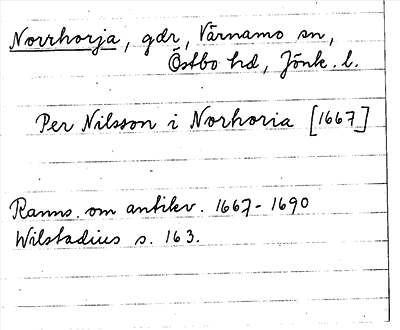 Norrhorja, gdr, Värnamo sn,
Östbo hd, Jönk. l.
Per Nilsson i Norhoria [1667]
Ranns. om antikv. 1667-1690
Wilstadius s. 163.